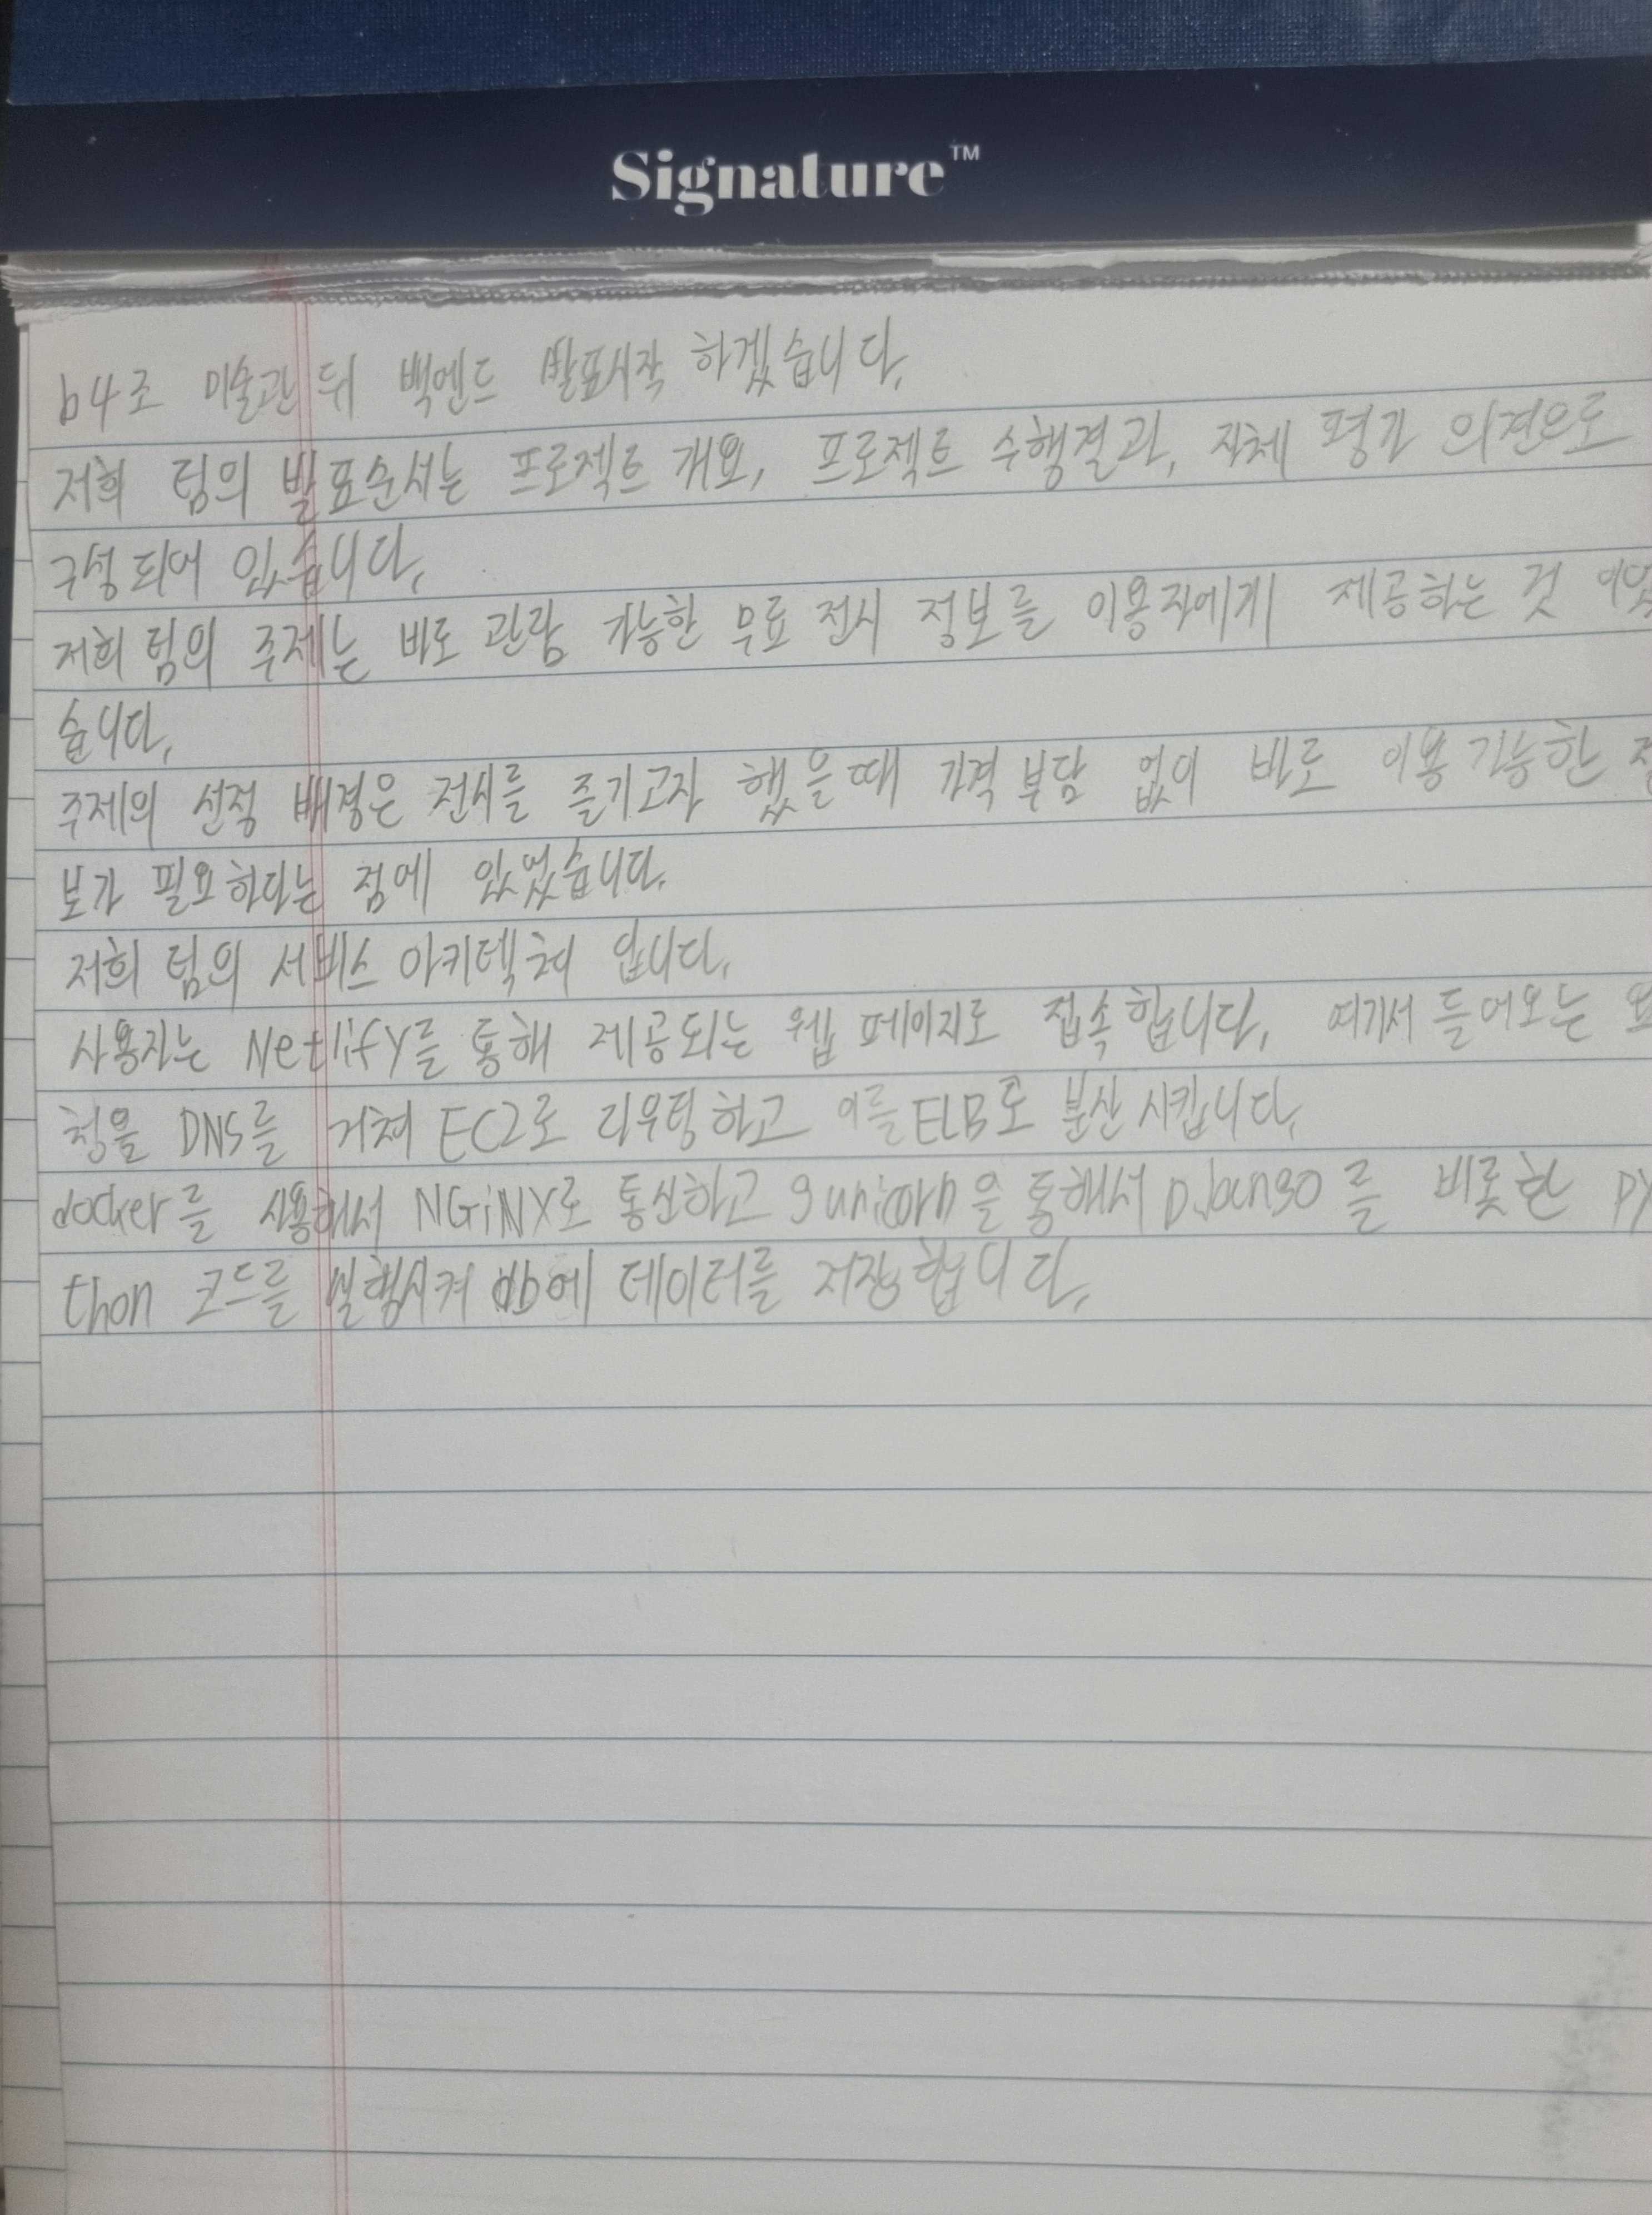 Signature™
b4조 미술관 뒤 백엔드 발표시작 하겠습니다.
저희 팀의 발표순서는 프로젝트 개요, 프로젝트 수행결과, 자체 평가 의견으로
구성 되어 있습니다.
저희 팀의 주제는 바로 관람 가능한 무료 전시 정보를 이용자에게 제공하는 것 이었
습니다.
주제의 선정 배경은 전시를 즐기고자 했을때 가격 부담 없이 바로 이용 가능한 정
보가 필요하다는 점에 있었습니다.
저희 팀의 서비스 아키텍쳐 입니다.
사용자는 Netlify를 통해 제공되는 웹 페이지로 접속합니다. 여기서 들어오는 요
청을 DNS를 거쳐 EC2로 라우팅하고 이를 ELB로 분산시킵니다.
docker를 사용해서 NGiNX로 통신하고 gunicorn을 통해서 DJango를 비롯한 py
thon 코드를 실행시켜 db에 데이터를 저장합니다.